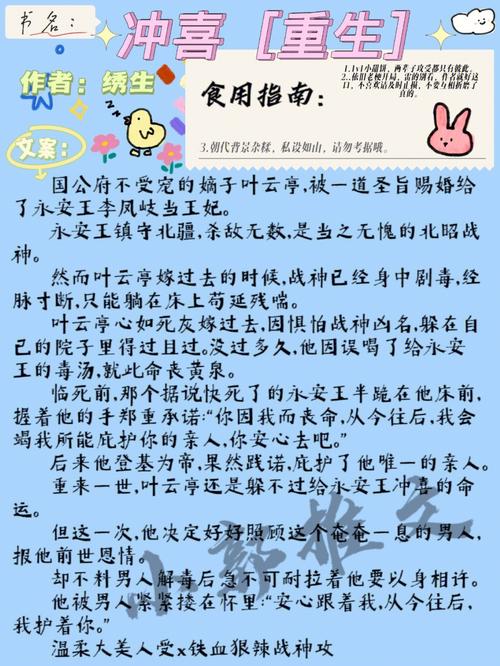 书名：
冲喜［重生］
作者：绣生
食用指南：
1.1v1小甜饼，两辈子攻受都只有彼此。
2.依旧老梗开局，雷的别看，作者就好这
口，不喜欢请及时止损，不要互相折磨了
真的。
3.朝代背景杂糅，私设如山，请勿考据哦。
文案：
国公府不受宠的嫡子叶云亭，被一道圣旨赐婚给
了永安王李凤岐当王妃。
永安王镇守北疆，杀敌无数，是当之无愧的北昭战
神。
然而叶云亭嫁过去的时候，战神已经身中剧毒，经
脉寸断，只能躺在床上苟延残喘。
叶云亭心如死灰嫁过去，因惧怕战神凶名，躲在自
己的院子里得过且过。没过多久，他因误喝了给永安
王的毒汤，就此命丧黄泉。
临死前，那个据说快死了的永安王半跪在他床前，
握着他的手郑重承诺：“你因我而丧命，从今往后，我会
竭我所能庇护你的亲人，你安心去吧。”
后来他登基为帝，果然践诺，庇护了他唯一的亲人。
重来一世，叶云亭还是躲不过给永安王冲喜的命
运。
但这一次，他决定好好照顾这个奄奄一息的男人，
报他前世恩情。
却不料男人解毒后急不可耐拉着他要以身相许。
他被男人紧紧搂在怀里：“安心跟着我，从今往后，
我护着你。”
温柔大美人受x铁血狠辣战神攻
小郭推文